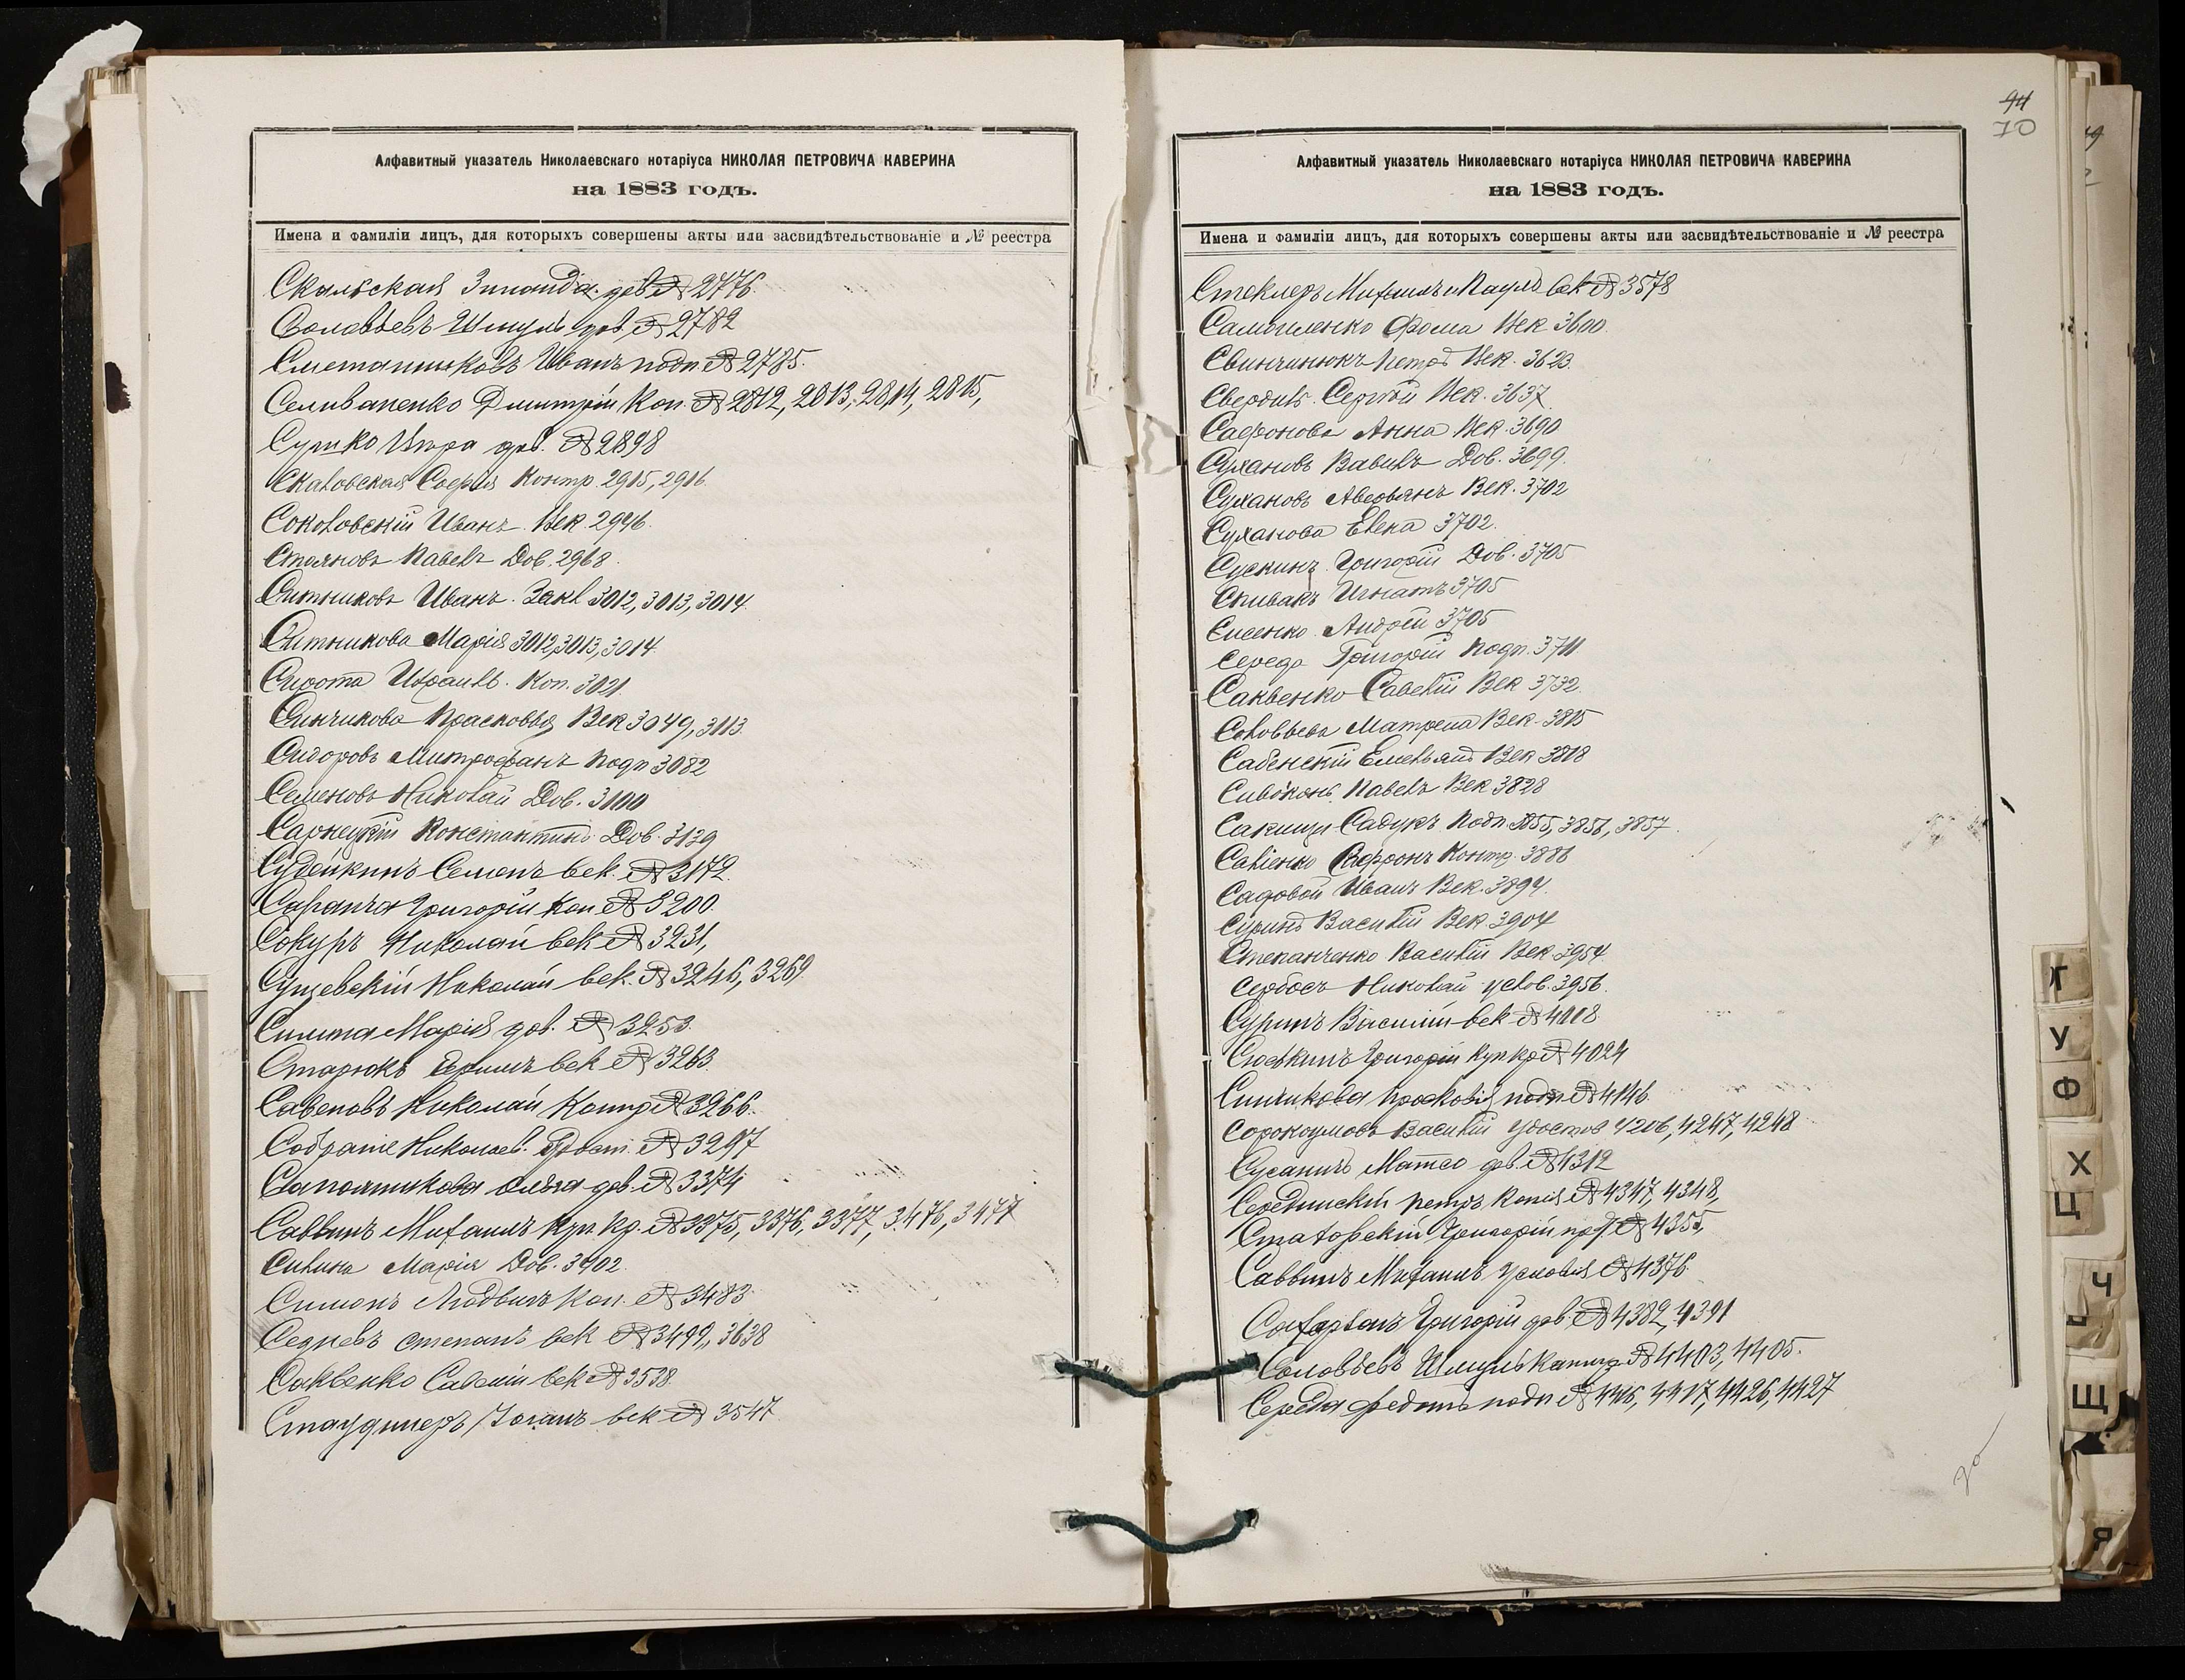 Алфавитный указатель Николаевскаго нотаріуса НИКОЛАЯ ПЕТРОВИЧА КАВЕРИНА
на 1883 годъ.
Имена и фамиліи лицъ, для которыхъ совершены акты или засвидѣтельствованіе и № реестра
Скальская Зинаида дов № 2776
Соловьевъ Шмуль дов № 2782
Сметанниковъ Иванъ подп № 2785.
Селиваненко Дмитрій Коп. № 2812, 2813, 2814, 2815,
Сушко дов. № 2898
Скаловская Софія Контр. 2915, 2916.
Соколовскій Иванъ. Век. 2946.
Стояновъ Павелъ Дов. 2968.
Ситниковъ Иванъ. Закл 3012, 3013, 3014.
Ситникова Марія 3012, 3013, 3014
Сирота Израиль. Коп. 3021.
Синчикова Прасковья Век 3049, 3113.
Сидоровъ Митрофанъ подп 3082
Семеновъ Николай Дов. 3100
Сарнецкій Константинъ Дов. 3139
Судейкинъ Семенъ век. № 3172.
Саранча Григорій коп № 3200.
Сокуръ Николай век № 3231,
Сущевскій Николай век. № 3246, 3269.
Марія дов. № 3253.
Старюкъ век № 3263.
Савеновъ Николай Контр № 3266.
Собраніе Николаев. № 3297
Сапожникова Ольга дов. № 3374
Саввинъ Михаилъ Куп. Кр. № 3375, 3376, 3377, 3476, 3477
Силина Марія Дов. 3402.
Симонъ Людвигъ Коп. № 3483.
Седневъ Степанъ век № 3499, 3638
Саквенко Савелій век № 3538.
Стаудингеръ Іоганъ век № 3547
94
70
Алфавитный указатель Николаевскаго нотаріуса НИКОЛАЯ ПЕТРОВИЧА КАВЕРИНА
на 1883 годъ.
Имена и фамиліи лицъ, для которыхъ совершены акты или засвидѣтельствованіе и № реестра
Стеклеръ Михаилъ и Паулъ век № 3578
Самойленко Фома Век 3600.
Свинчинюкъ Петръ Век. 3623.
Сергѣй Век. 3637.
Сафонова Анна Век. 3690
Сухановъ Вавилъ Дов. 3699.
Сухановъ Аверьянъ Век. 3702
Суханова Елена 3702.
Сускинъ Григорій Дов. 3705
Спивакъ Игнатъ 3705
Андрей 3705
Середа Григорій Подп. 3711
Саквенко Савелій Век 3732.
Соловьева Матрена Век. 3815
Сабенскій Емельянъ Век 3818
Сивоконь Павелъ Век 3828
Садукъ Подп. 3856, 3857.
Савіенко Сафронъ Контр. 3886
Садовой Иванъ Век. 3894.
Суринъ Василій Век 3904
Степанченко Василій Век. 3954
Сербосъ Николай услов. 3956.
Суринъ Василій век № 4008
Сюткинъ Григорій куп кр № 4024
Синчикова Прасковія подп № 4146.
Сорокоумовъ Василій удостов 4206, 4247, 4248
Сусаничъ Матео дов. № 4312
Серединскій Петръ Копія № 4347, 4348,
Григорій № 4355,
Саввинъ Михаилъ Условія № 4376
Григорій дов № 4382, 4391
Соловьевъ Шмуль № 4403, 4405.
Середа Федотъ подп № 4416, 4417, 4426, 4427
70
Т
У
Ф
Х
Ц
Ч
Щ
Я